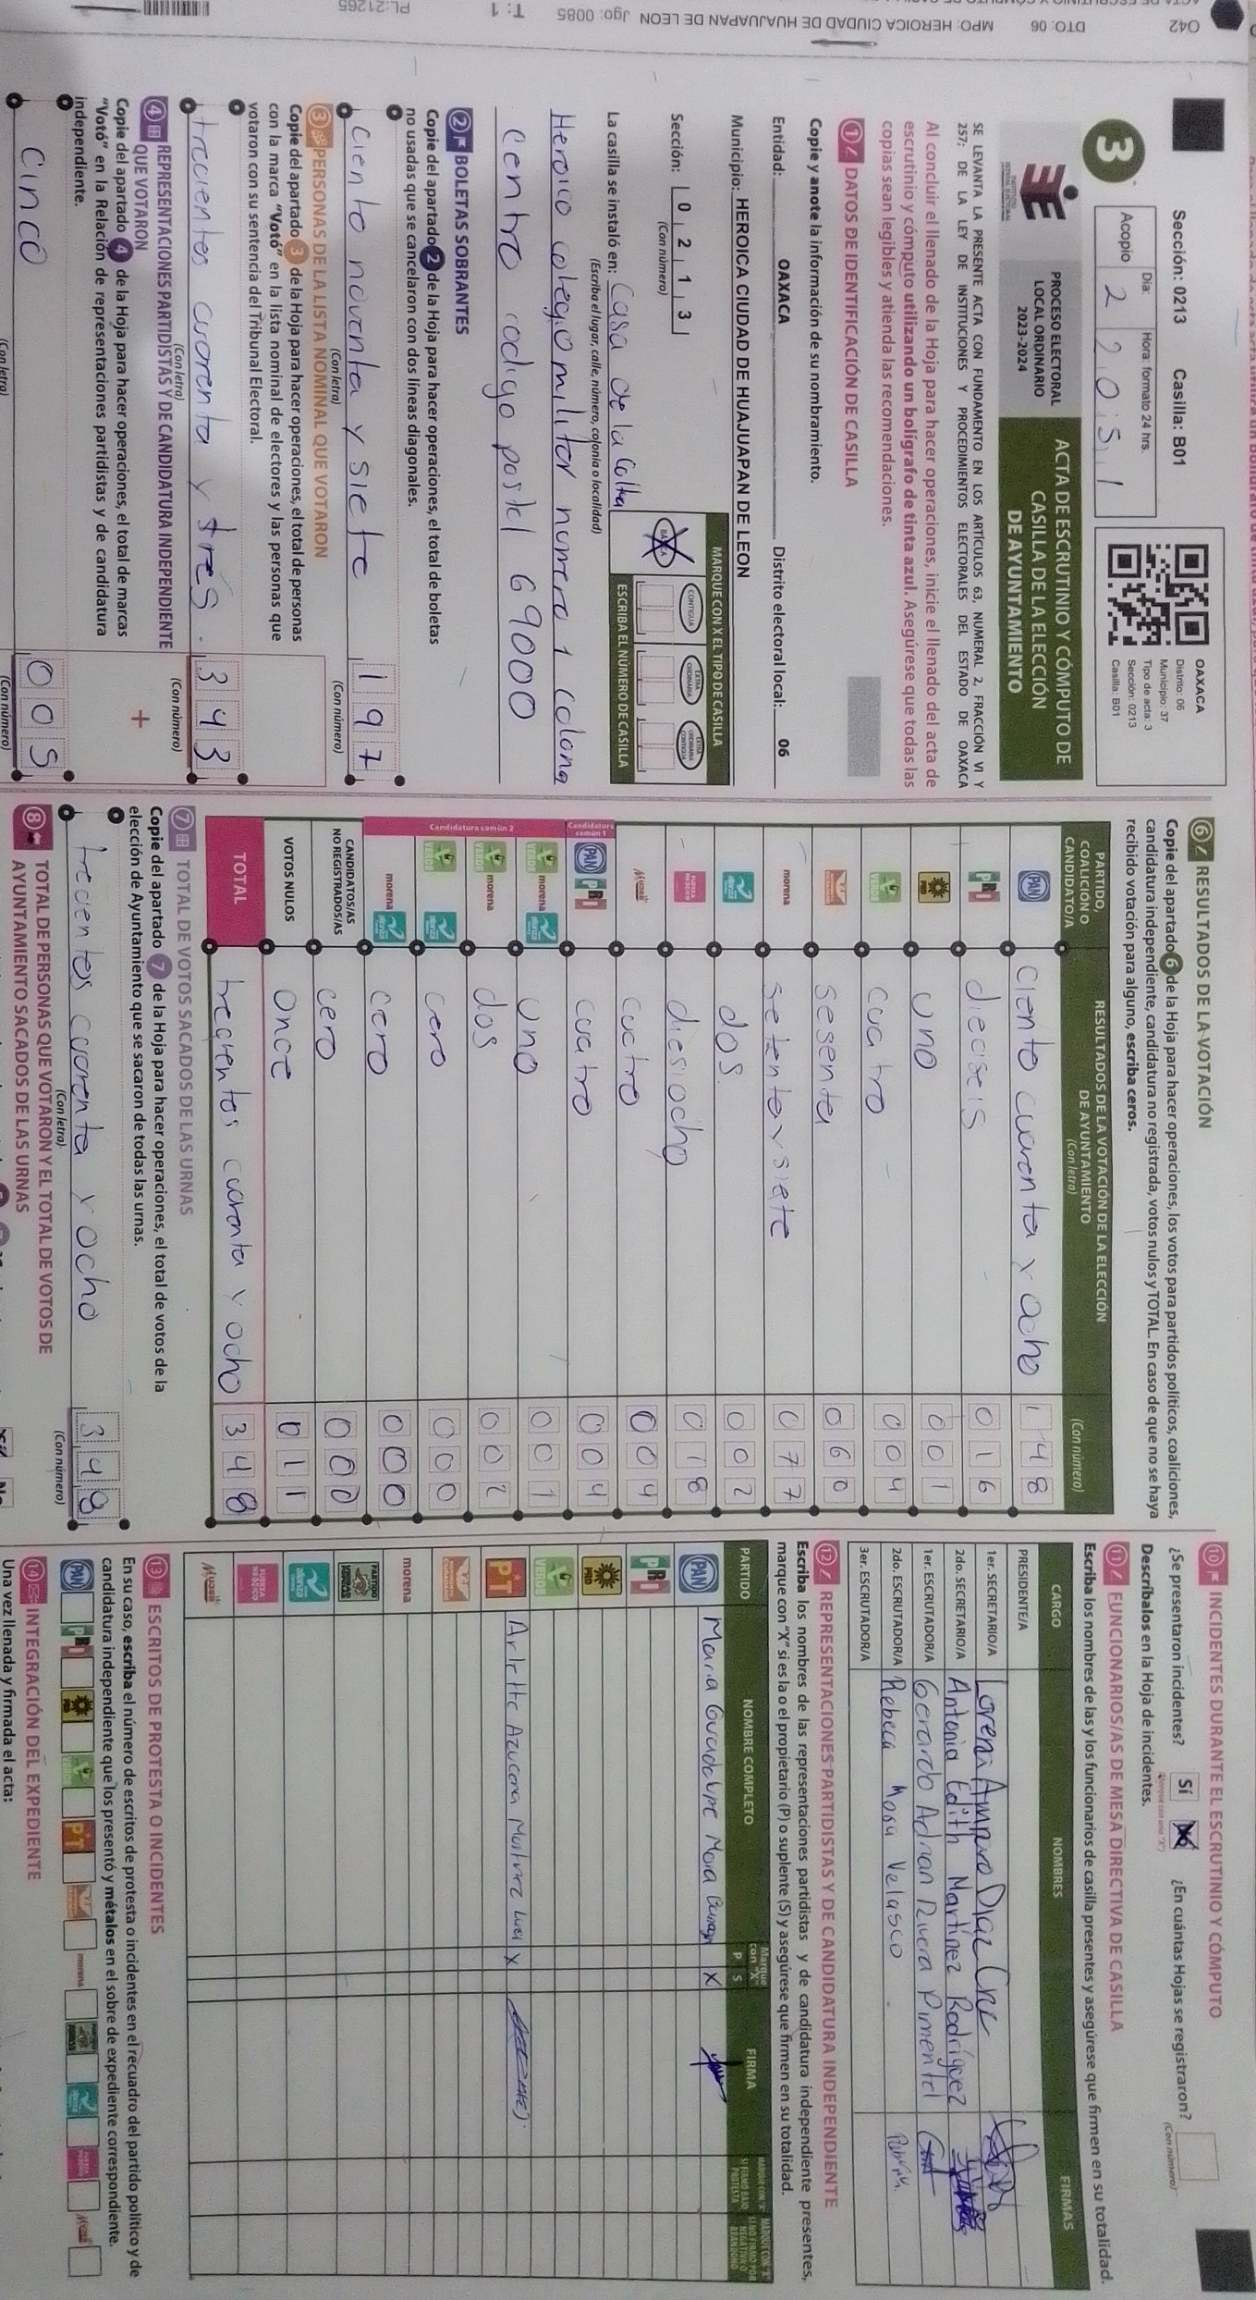 042
DTO: 06
MPO: HEROICA CIUDAD DE HUAJUAPAN DE LEON Jgo: 0085
T: 1
PL:21265
Sección: 0213 Casilla: B01
3
Día: Hora: formato 24 hrs.
Acopio 2 20:51
OAXACA
Distrito: 06
Municipio: 37
Tipo de acta: 3
Sección: 0213
Casilla: B01
PROCESO ELECTORAL
LOCAL ORDINARIO
2023-2024
ACTA DE ESCRUTINIO Y CÓMPUTO DE
CASILLA DE LA ELECCIÓN
DE AYUNTAMIENTO
SE LEVANTA LA PRESENTE ACTA CON FUNDAMENTO EN LOS ARTÍCULOS 63, NUMERAL 2, FRACCIÓN VI Y
257; DE LA LEY DE INSTITUCIONES Y PROCEDIMIENTOS ELECTORALES DEL ESTADO DE OAXACA
Al concluir el llenado de la Hoja para hacer operaciones, inicie el llenado del acta de
escrutinio y cómputo utilizando un bolígrafo de tinta azul. Asegúrese que todas las
copias sean legibles y atienda las recomendaciones.
1 DATOS DE IDENTIFICACIÓN DE CASILLA
Copie y anote la información de su nombramiento.
Entidad: OAXACA Distrito electoral local: 06
Municipio: HEROICA CIUDAD DE HUAJUAPAN DE LEON
Sección: 0 2 1 3
(Con número)
MARQUE CON X EL TIPO DE CASILLA
BÁSICA CONTIGUA EXTRAORDINARIA
ESCRIBA EL NÚMERO DE CASILLA
La casilla se instaló en: Casa de la Cultu
(Escriba el lugar, calle, número, colonia o localidad)
Heroico colegio militar numero 1 colona
Centro codigo postal 69000
2 BOLETAS SOBRANTES
Copie del apartado 2 de la Hoja para hacer operaciones, el total de boletas
no usadas que se cancelaron con dos líneas diagonales.
ciento noventa y siete 197
(Con letra) (Con número)
3 PERSONAS DE LA LISTA NOMINAL QUE VOTARON
Copie del apartado 3 de la Hoja para hacer operaciones, el total de personas
con la marca "Votó" en la lista nominal de electores y las personas que
votaron con su sentencia del Tribunal Electoral.
trecientos cuorenta y tres. 343
(Con letra) (Con número)
4 REPRESENTACIONES PARTIDISTAS Y DE CANDIDATURA INDEPENDIENTE
QUE VOTARON
+
Copie del apartado 4 de la Hoja para hacer operaciones, el total de marcas
"Votó" en la Relación de representaciones partidistas y de candidatura
independiente.
Cinco 005
(Con letra) (Con número)
6 RESULTADOS DE LA VOTACIÓN
Copie del apartado 6 de la Hoja para hacer operaciones, los votos para partidos políticos, coaliciones,
candidatura independiente, candidatura no registrada, votos nulos y TOTAL. En caso de que no se haya
recibido votación para alguno, escriba ceros.
PARTIDO,
COALICIÓN O
CANDIDATO/A
RESULTADOS DE LA VOTACIÓN DE LA ELECCIÓN
DE AYUNTAMIENTO
(Con letra) (Con número)
PAN ciento cuarenta y ocho 148
PRI dieciseis 016
PRD uno 001
VERDE cuatro 004
sesenta 060
morena setenta y siete 077
alianza dos. 002
FUERZA MÉXICO diesiocho 018
Mujer cuatro 004
Candidatura común 1
PAN PRI cuatro 004
Candidatura común 2
VERDE morena alianza uno 001
VERDE morena dos 002
VERDE alianza cero 000
morena alianza cero 000
CANDIDATOS/AS
NO REGISTRADOS/AS cero 000
VOTOS NULOS once 011
TOTAL trecientos cuarenta y ocho 348
7 TOTAL DE VOTOS SACADOS DE LAS URNAS
Copie del apartado 7 de la Hoja para hacer operaciones, el total de votos de la
elección de Ayuntamiento que se sacaron de todas las urnas.
trecientos cuorenta y ocho 348
(Con letra) (Con número)
8 TOTAL DE PERSONAS QUE VOTARON Y EL TOTAL DE VOTOS DE
AYUNTAMIENTO SACADOS DE LAS URNAS
10 INCIDENTES DURANTE EL ESCRUTINIO Y CÓMPUTO
¿Se presentaron incidentes? Sí No ¿En cuántas Hojas se registraron?
(Con número)
Descríbalos en la Hoja de incidentes.
11 FUNCIONARIOS/AS DE MESA DIRECTIVA DE CASILLA
Escriba los nombres de las y los funcionarios de casilla presentes y asegúrese que firmen en su totalidad.
CARGO NOMBRES FIRMAS
PRESIDENTE/A
1er. SECRETARIO/A Loreni Amparo Diaz Cruz
2do. SECRETARIO/A Antonia Edith Martínez Rodríguez
1er. ESCRUTADOR/A Gerardo Adrian Rivera Pimentel
2do. ESCRUTADOR/A Rebeca Rosa Velasco
3er. ESCRUTADOR/A
12 REPRESENTACIONES PARTIDISTAS Y DE CANDIDATURA INDEPENDIENTE
Escriba los nombres de las representaciones partidistas y de candidatura independiente presentes,
marque con "X" si es la o el propietario (P) o suplente (S) y asegúrese que firmen en su totalidad.
PARTIDO NOMBRE COMPLETO Marque con "X" P S FIRMA
PAN Maria Guadalupe Mora X
PRI
PRD
VERDE
PT Arlette Azucena X
morena
13 ESCRITOS DE PROTESTA O INCIDENTES
En su caso, escriba el número de escritos de protesta o incidentes en el recuadro del partido político y de
candidatura independiente que los presentó y métalos en el sobre de expediente correspondiente.
PAN PRI PRD VERDE PT morena
14 INTEGRACIÓN DEL EXPEDIENTE
Una vez llenada y firmada el acta: